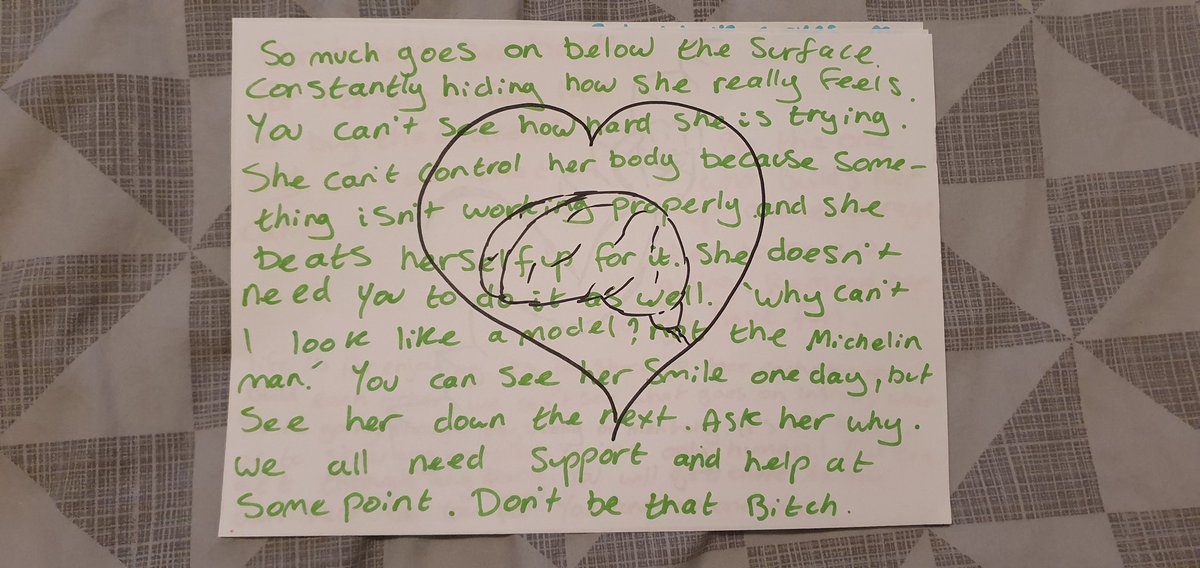 So much goes on below the surface.
Constantly hiding how she really feels.
You can't see how hard she is trying.
She can't control her body because some-
thing isn't working properly and she
beats herself up for it. She doesn't
need you to do it as well. "Why can't
I look like a model? not the Michelin
man." You can see her smile one day, but
see her down the next. Ask her why.
We all need support and help at
some point. Don't be that Bitch.